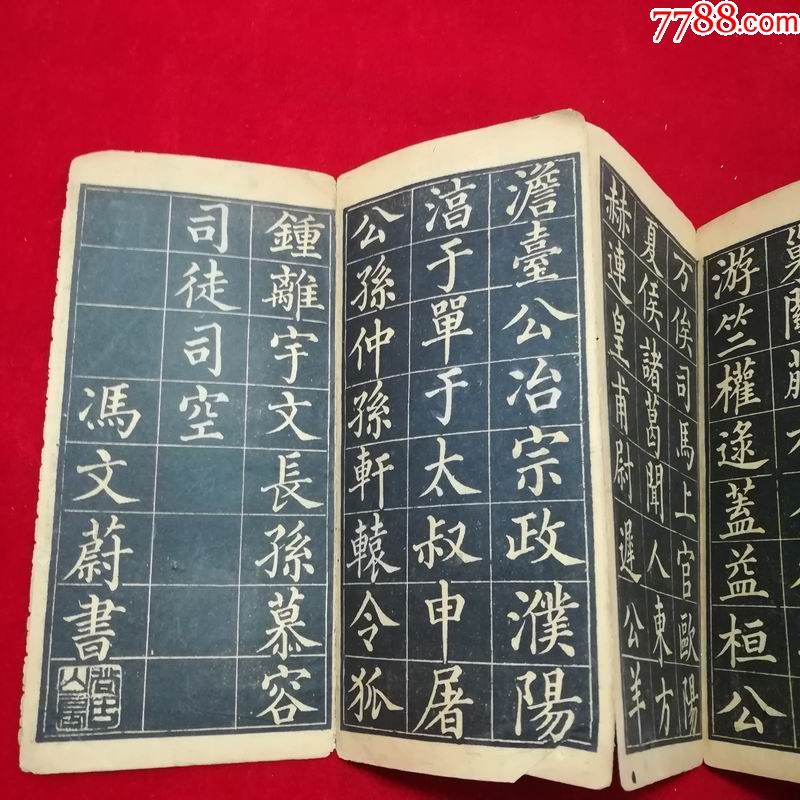 7788.com
游竺權逯蓋益桓公
万俟司馬上官歐陽
夏侯諸葛聞人東方
赫連皇甫尉遲公羊
澹臺公冶宗政濮陽
湻于單于太叔申屠
公孫仲孫軒轅令狐
鍾離宇文長孫慕容
司徒司空
馮文蔚書